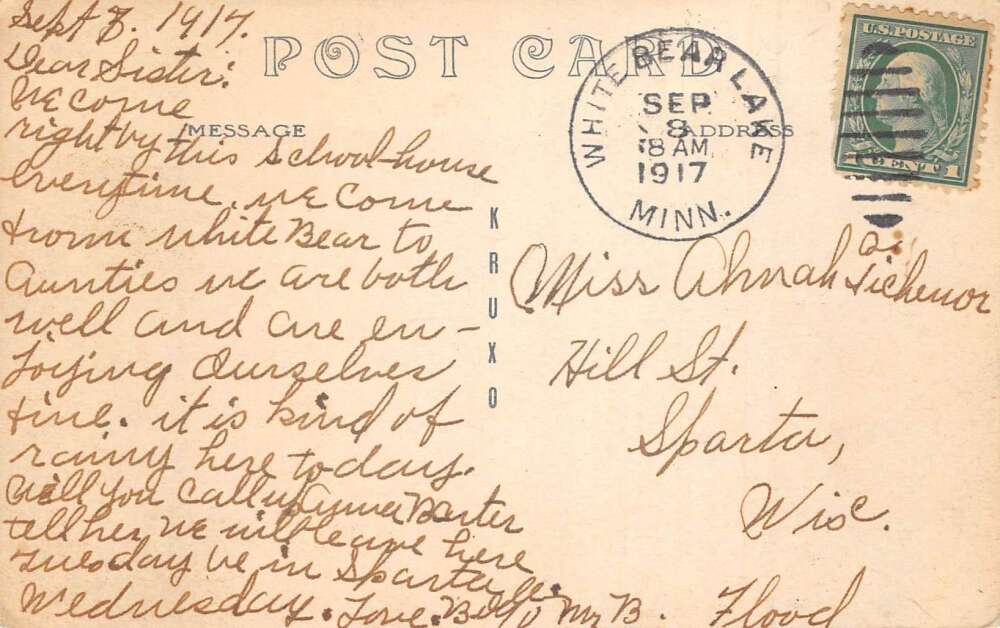 Sept 8. 1917.
Dear Sister:
We come
right by this School-house
everytime. we come
from White Bear to
Aunties we are both
well and are en-
joying Ourselves
fine. it is kind of
rainy here today.
Will you call up Anna Barter
tell her we will leave here
Tuesday be in Sparta
Wednesday. Love.
POST CARD
MESSAGE
ADDRESS
WHITE BEAR LAKE
SEP
8
8 AM
1917
MINN.
U.S. POSTAGE
1 CENT 1
KRUXO
Miss Almah Tichenor
Hill St.
Sparta,
Wis.
c/o Mr B. Flood